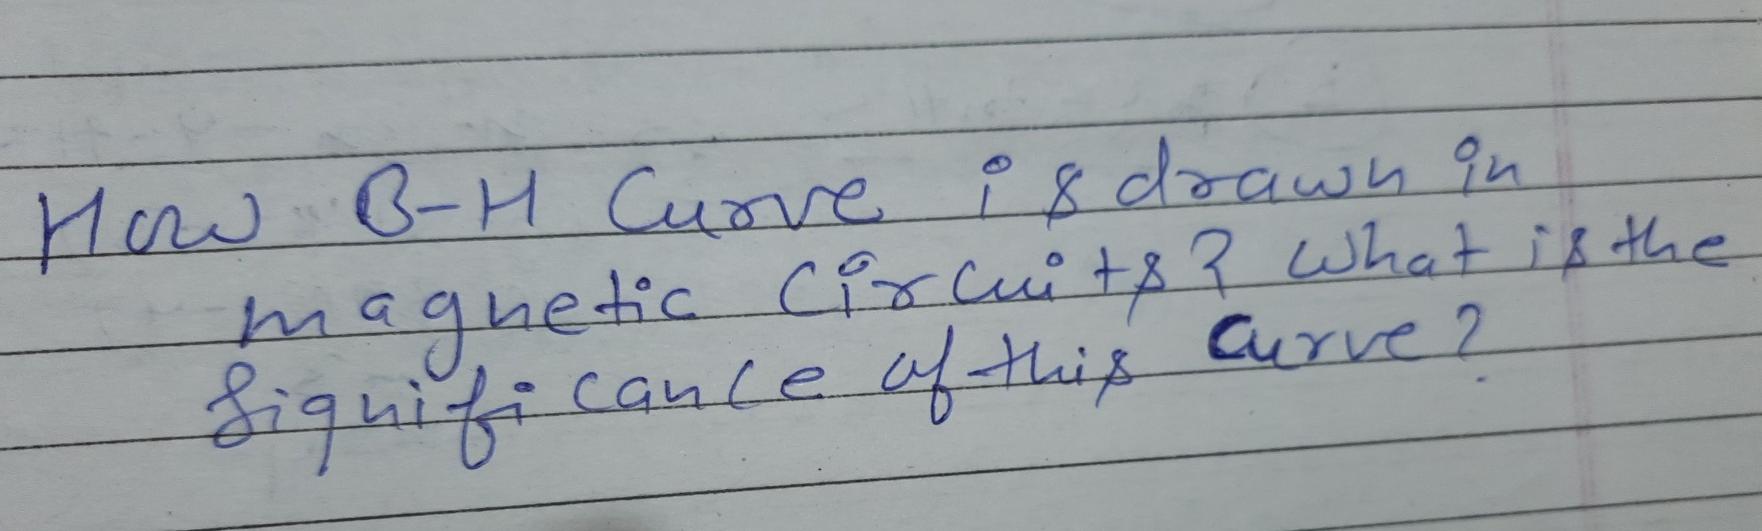 How B-H Curve is drawn in
magnetic Circuits? What is the
Significance of this Curve?